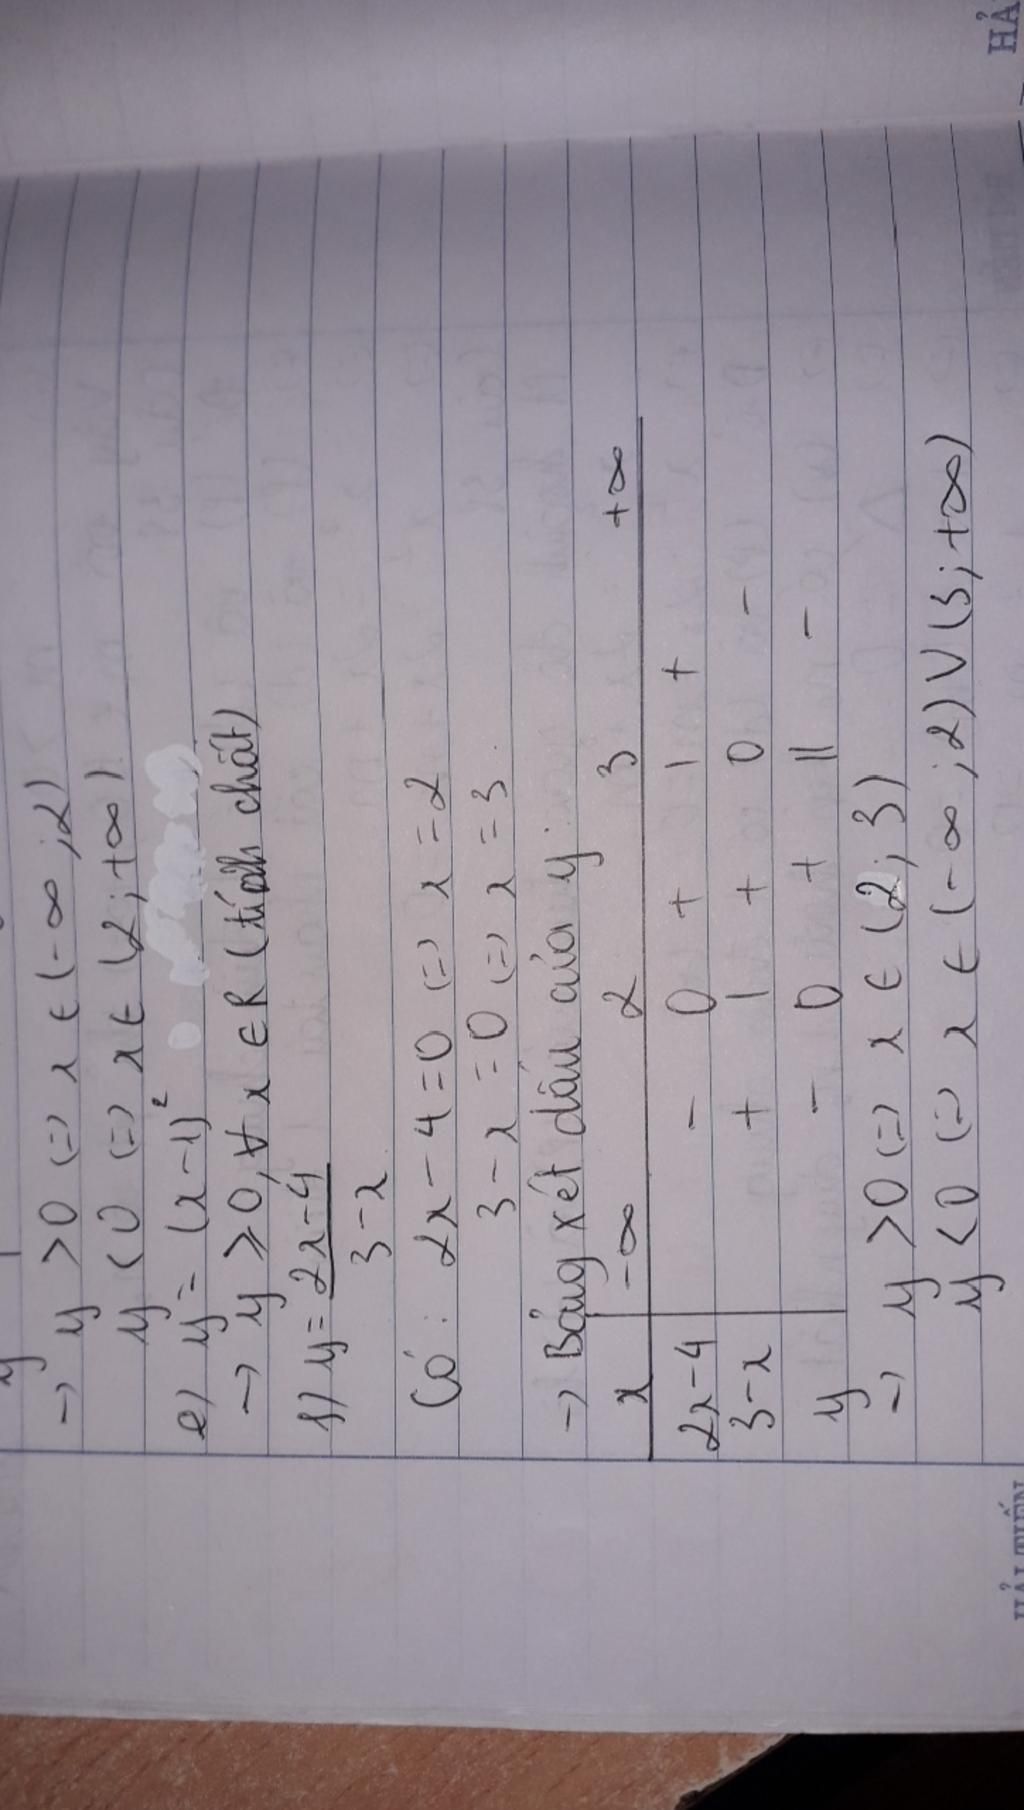 → y > 0 (=) x ∈ (-∞ ; 2)
y < 0 (=) x ∈ (2 ; +∞)
e) y = (x-1)²
→ y ≥ 0, ∀ x ∈ R (tính chất)
f) y = 2x-4
3-x
Có : 2x - 4 = 0 (=) x = 2
3 - x = 0 (=) x = 3.
→ Bảng xét dấu của y:
x -∞ 2 3 +∞
2x-4 - 0 + | +
3-x + | + 0 -
y - 0 + || -
→ y > 0 (=) x ∈ (2 ; 3)
y < 0 (=) x ∈ (-∞ ; 2) V (3 ; +∞)
HẢI TIẾN
HẢ